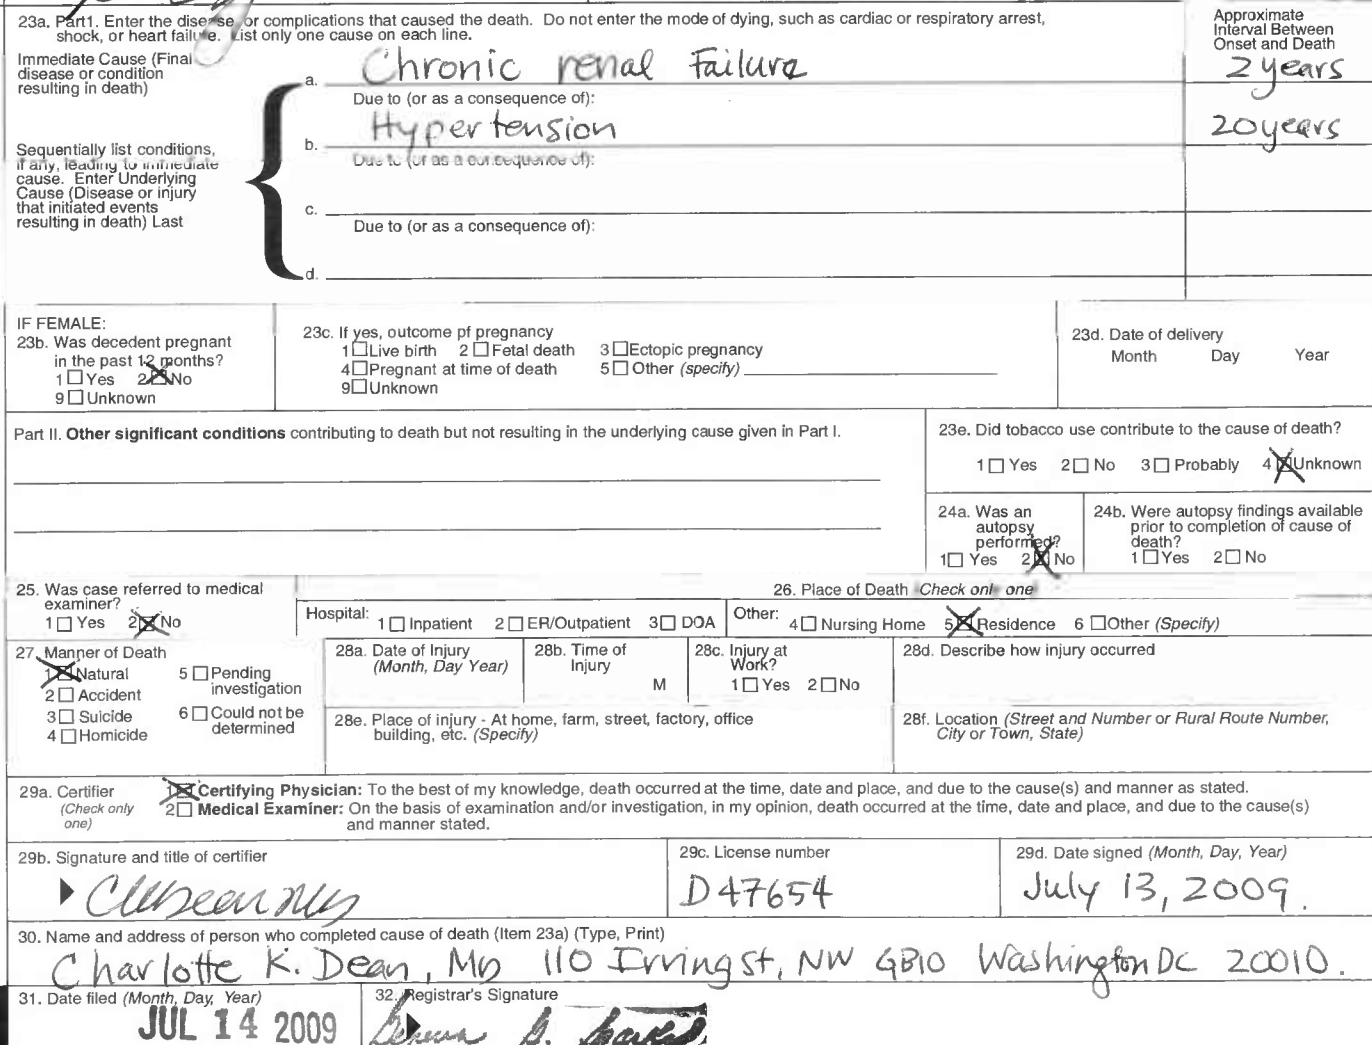 23a. Part1. Enter the disease, or complications that caused the death. Do not enter the mode of dying, such as cardiac or respiratory arrest,
shock, or heart failure. List only one cause on each line.
Approximate
Interval Between
Onset and Death
Immediate Cause (Final
disease or condition
resulting in death)
a. Chronic renal Failure
2 years
Due to (or as a consequence of):
b. Hypertension
20 years
Sequentially list conditions,
if any, leading to immediate
cause. Enter Underlying
Cause (Disease or injury
that initiated events
resulting in death) Last
Due to (or as a consequence of):
c.
Due to (or as a consequence of):
d.
IF FEMALE:
23b. Was decedent pregnant
in the past 12 months?
1 ☐ Yes 2 ☒ No
9 ☐ Unknown
23c. If yes, outcome pf pregnancy
1 ☐ Live birth 2 ☐ Fetal death 3 ☐ Ectopic pregnancy
4 ☐ Pregnant at time of death 5 ☐ Other (specify)
9 ☐ Unknown
23d. Date of delivery
Month Day Year
Part II. Other significant conditions contributing to death but not resulting in the underlying cause given in Part I.
23e. Did tobacco use contribute to the cause of death?
1 ☐ Yes 2 ☐ No 3 ☐ Probably 4 ☒ Unknown
24a. Was an
autopsy
performed?
1 ☐ Yes 2 ☒ No
24b. Were autopsy findings available
prior to completion of cause of
death?
1 ☐ Yes 2 ☐ No
25. Was case referred to medical
examiner?
1 ☐ Yes 2 ☒ No
26. Place of Death Check only one
Hospital: 1 ☐ Inpatient 2 ☐ ER/Outpatient 3 ☐ DOA
Other: 4 ☐ Nursing Home 5 ☒ Residence 6 ☐ Other (Specify)
27. Manner of Death
1 ☒ Natural
2 ☐ Accident
3 ☐ Suicide
4 ☐ Homicide
5 ☐ Pending
investigation
6 ☐ Could not be
determined
28a. Date of Injury
(Month, Day Year)
28b. Time of
Injury
M
28c. Injury at
Work?
1 ☐ Yes 2 ☐ No
28d. Describe how injury occurred
28e. Place of injury - At home, farm, street, factory, office
building, etc. (Specify)
28f. Location (Street and Number or Rural Route Number,
City or Town, State)
29a. Certifier
(Check only
one)
1 ☒ Certifying Physician: To the best of my knowledge, death occurred at the time, date and place, and due to the cause(s) and manner as stated.
2 ☐ Medical Examiner: On the basis of examination and/or investigation, in my opinion, death occurred at the time, date and place, and due to the cause(s)
and manner stated.
29b. Signature and title of certifier
29c. License number
D47654
29d. Date signed (Month, Day, Year)
July 13, 2009.
30. Name and address of person who completed cause of death (Item 23a) (Type, Print)
Charlotte K. Dean, MD 110 Irving st, NW GB10 Washington DC 20010.
31. Date filed (Month, Day, Year)
JUL 14 2009
32. Registrar's Signature